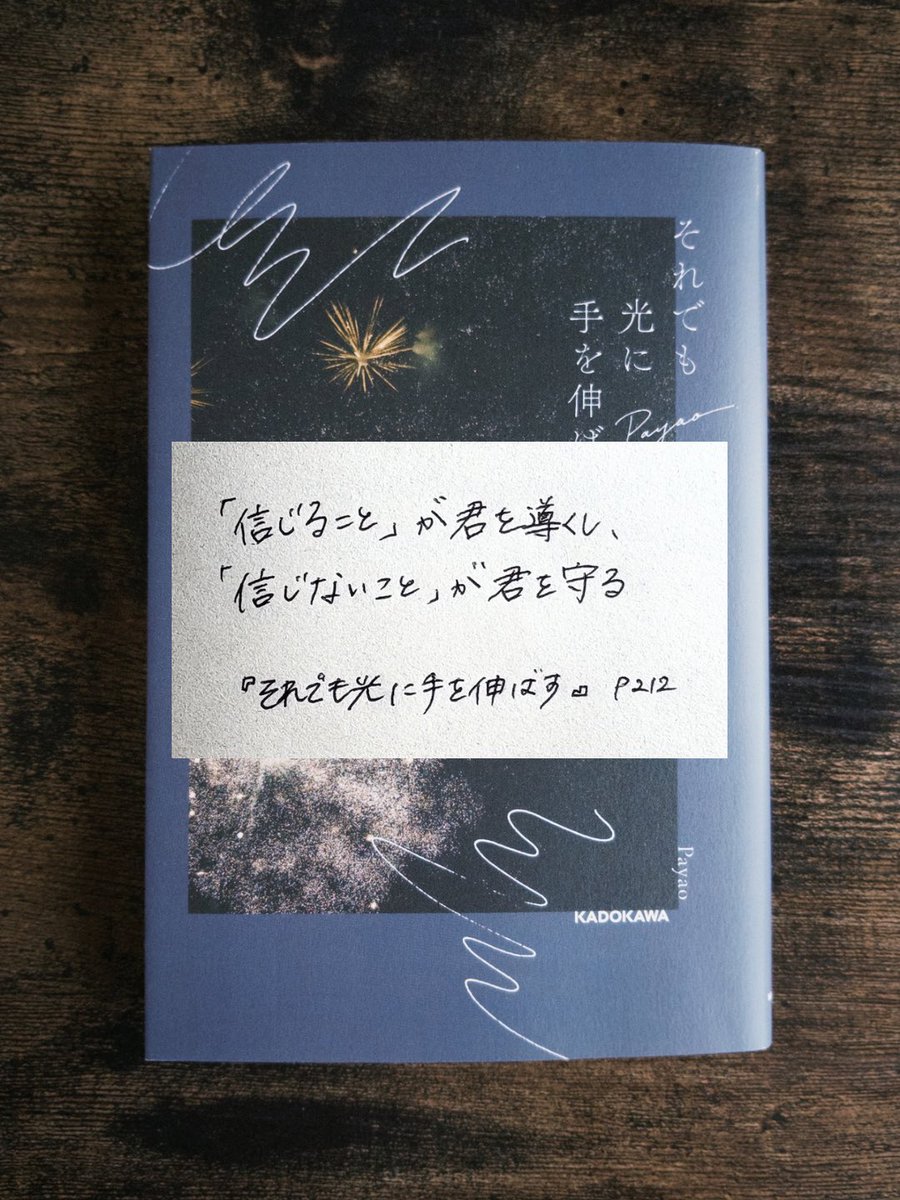 それでも
光に
手を伸ば
Payao
「信じること」が君を導くし、
「信じないこと」が君を守る
『それでも光に手を伸ばす』 P212
Payao
KADOKAWA